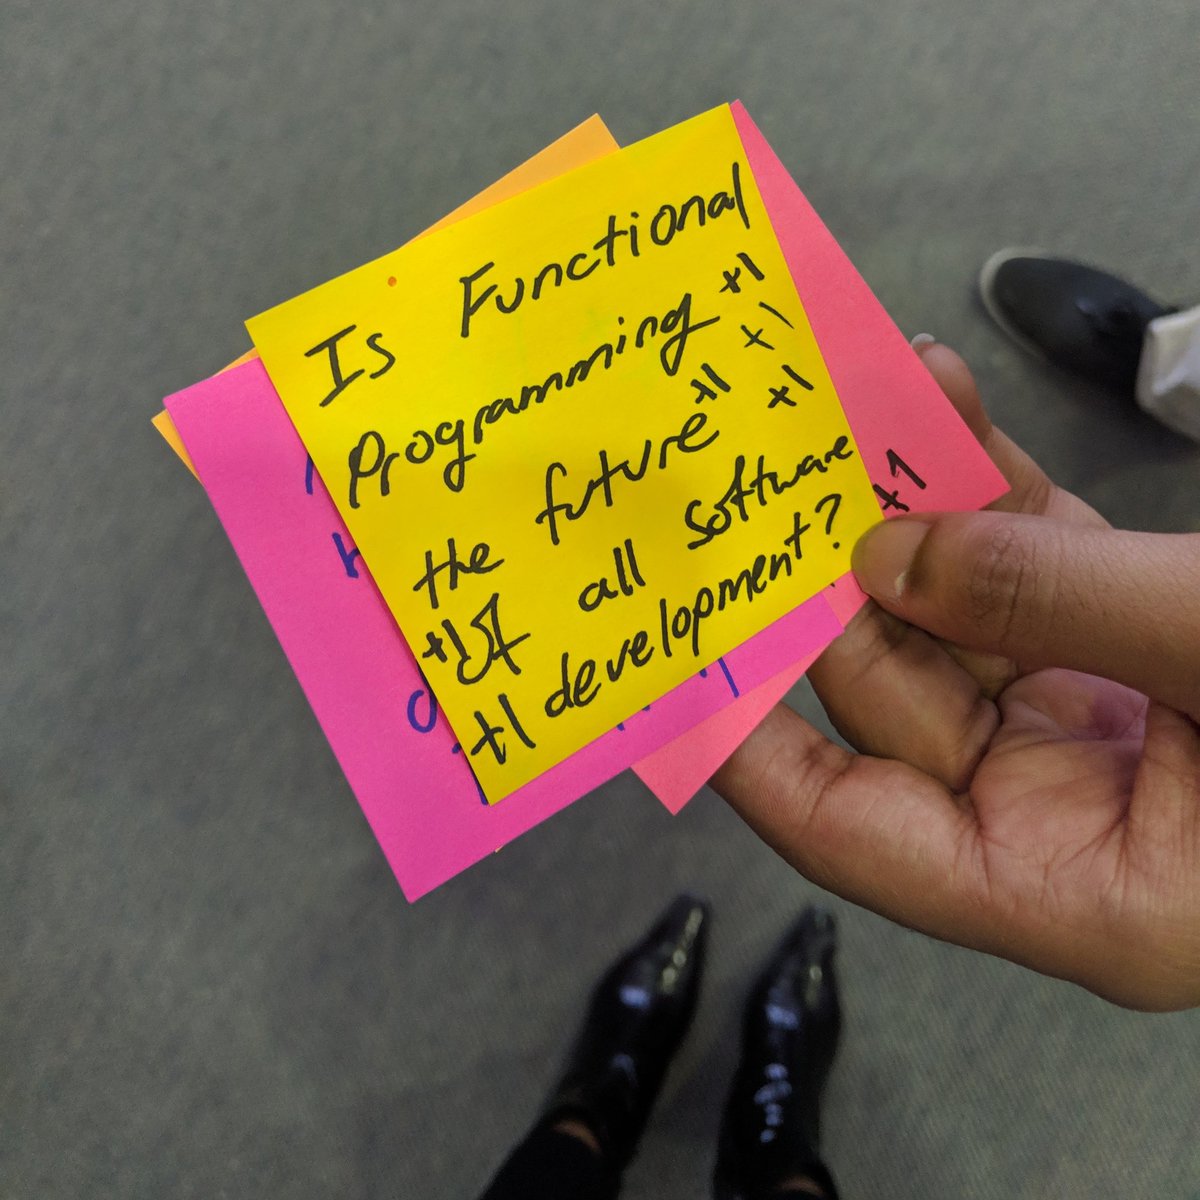 Is Functional
Programming +1
+1
the future +1 +1
+1 of all software
+1 development?
+1